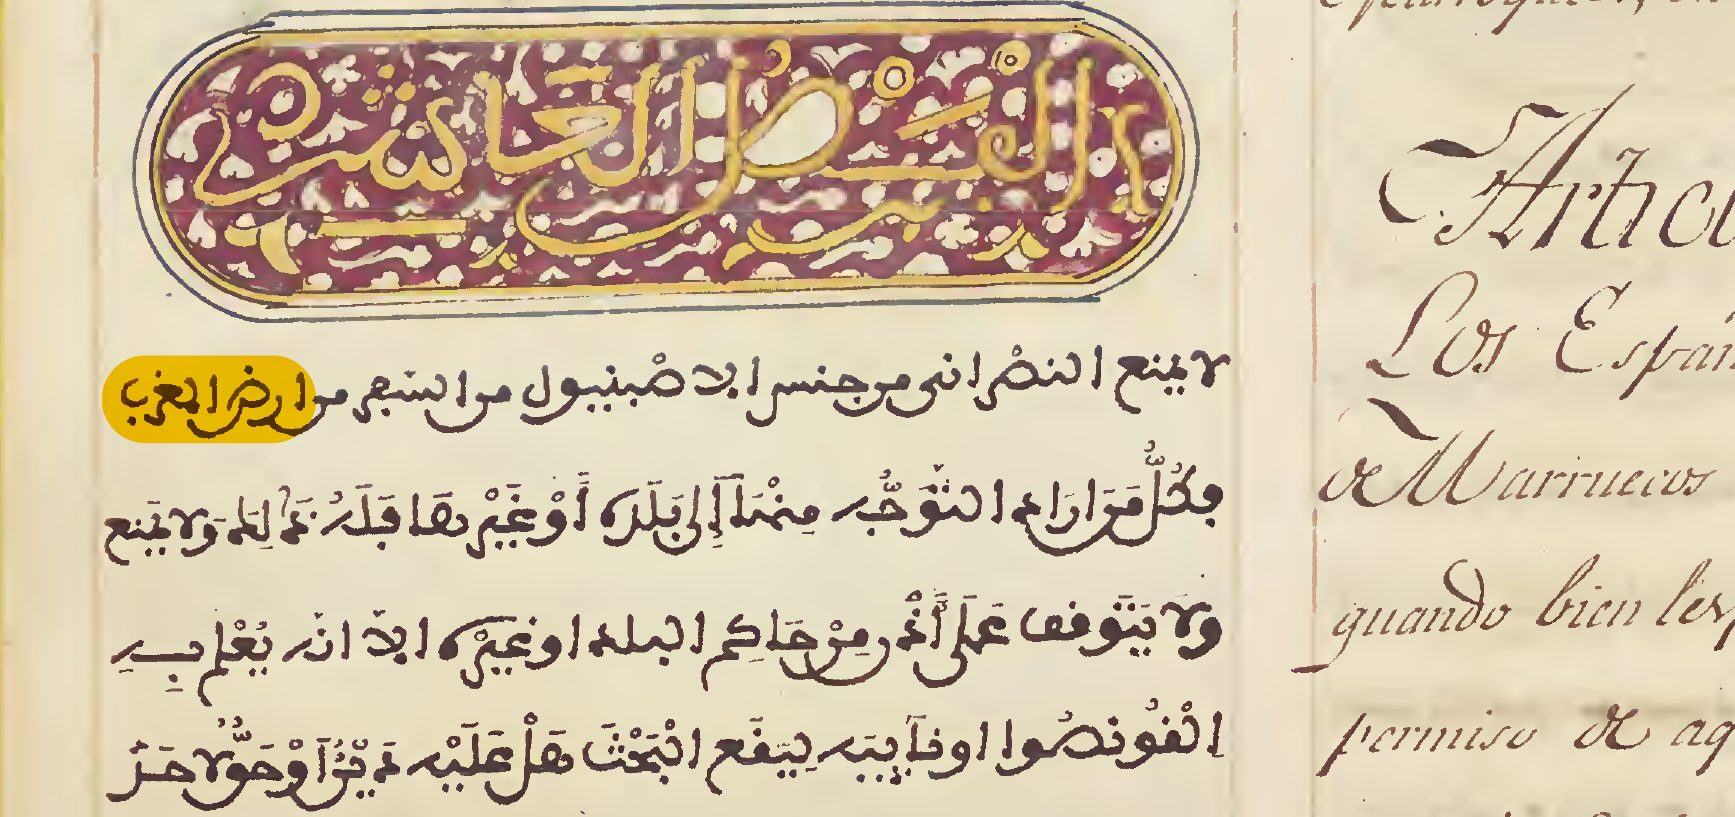 الشرط العاشر
لا يمنع النصراني من جنس الاصبنيول من السفر من ارض المغرب
فكُلُّ مَن اراد التَّوَجُّه مِنْهَا إِلى بَلَدِه أَوْ غَيْرِهَا فَلَهُ ذَالِكَ وَلا يُمْنَع
ولا يَتَوقف عَلى أَمْر مِنْ حَاكِم البلد او غَيْرِه الا انه يُعْلِم بِه
الْقُونصُوا او نآيِبَه لِيَقَع الْبَحْثُ هَلْ عَلَيْه
Artic
Los Españ
de Marruecos
quando bien les
permiso de aq